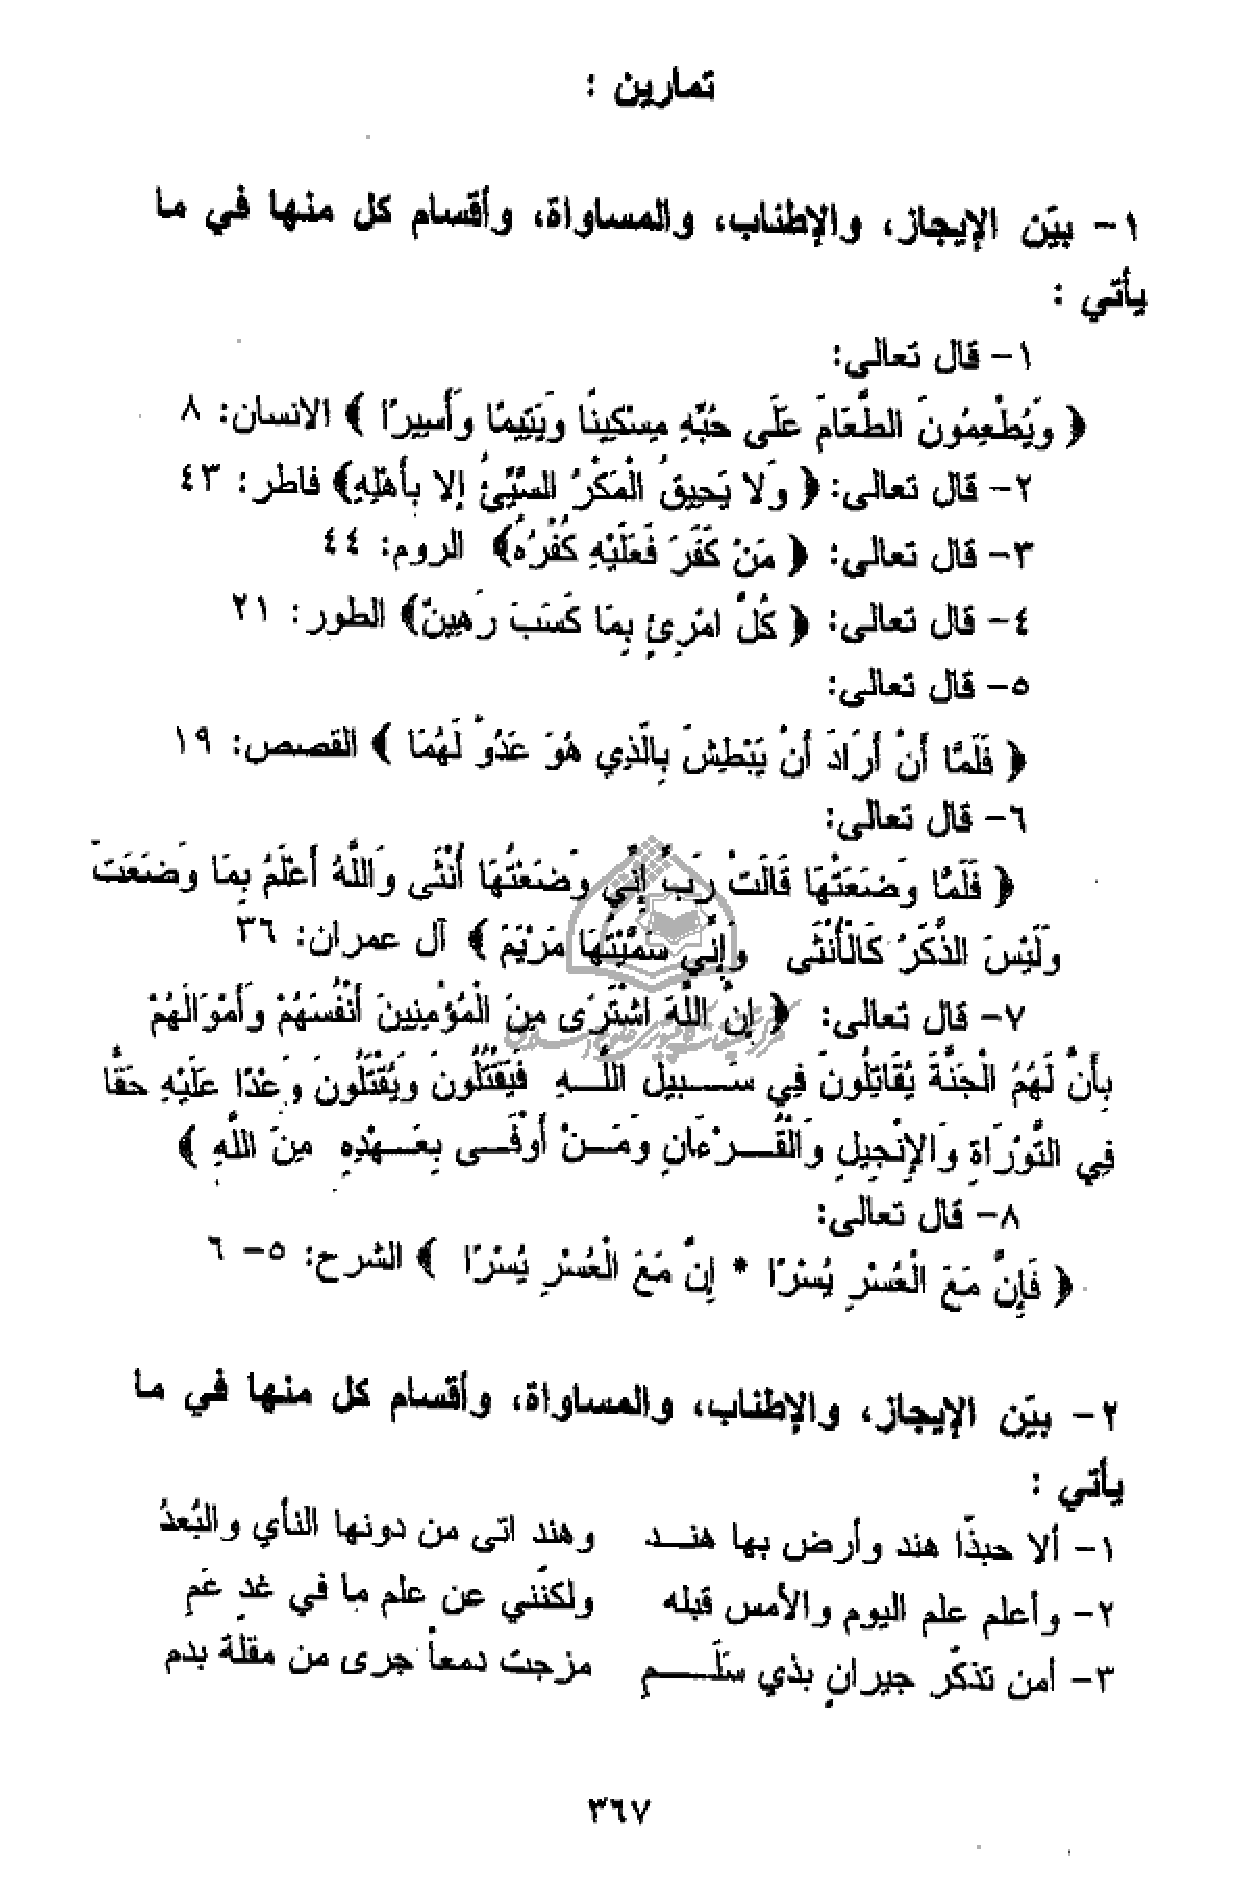 تمارين :
١- بيّن الإيجاز، والإطناب، والمساواة، وأقسام كل منها في ما
يأتي :
١- قال تعالى:
﴿ وَيُطْعِمُونَ الطَّعَامَ عَلَى حُبِّهِ مِسْكِينًا وَيَتِيمًا وَأَسِيرًا ﴾ الانسان: ٨
٢- قال تعالى: ﴿ وَلا يَحِيقُ الْمَكْرُ السَّيِّئُ إلا بِأَهْلِهِ﴾ فاطر: ٤٣
٣- قال تعالى: ﴿ مَنْ كَفَرَ فَعَلَيْهِ كُفْرُهُ﴾ الروم: ٤٤
٤- قال تعالى: ﴿ كُلُّ امْرِئٍ بِمَا كَسَبَ رَهِينٌ﴾ الطور: ٢١
٥- قال تعالى:
﴿ فَلَمَّا أَنْ أَرَادَ أَنْ يَبْطِشَ بِالَّذِي هُوَ عَدُوٌّ لَهُمَا ﴾ القصص: ١٩
٦- قال تعالى:
﴿ فَلَمَّا وَضَعَتْهَا قَالَتْ رَبِّ إِنِّي وَضَعْتُهَا أُنْثَى وَاللَّهُ أَعْلَمُ بِمَا وَضَعَتْ
وَلَيْسَ الذَّكَرُ كَالْأُنْثَى وَإِنِّي سَمَّيْتُهَا مَرْيَمَ ﴾ آل عمران: ٣٦
٧- قال تعالى: ﴿ إِنَّ اللَّهَ اشْتَرَى مِنَ الْمُؤْمِنِينَ أَنْفُسَهُمْ وَأَمْوَالَهُمْ
بِأَنَّ لَهُمُ الْجَنَّةَ يُقَاتِلُونَ فِي سَبِيلِ اللَّهِ فَيَقْتُلُونَ وَيُقْتَلُونَ وَعْدًا عَلَيْهِ حَقًّا
فِي التَّوْرَاةِ وَالإِنْجِيلِ وَالْقُرْءَانِ وَمَنْ أَوْفَى بِعَهْدِهِ مِنَ اللَّهِ ﴾
٨- قال تعالى:
﴿ فَإِنَّ مَعَ الْعُسْرِ يُسْرًا * إِنَّ مَعَ الْعُسْرِ يُسْرًا ﴾ الشرح: ٥- ٦
٢- بيّن الإيجاز، والإطناب، والمساواة، وأقسام كل منها في ما
يأتي :
١- ألا حبذّا هند وأرض بها هند وهند اتى من دونها النأي والبُعدُ
٢- وأعلم علم اليوم والأمس قبله ولكنّني عن علم ما في غدٍ عَمِ
٣- أمن تذكّر جيرانٍ بذي سَلَمِ مزجت دمعاً جرى من مقلة بدم
٣٦٧